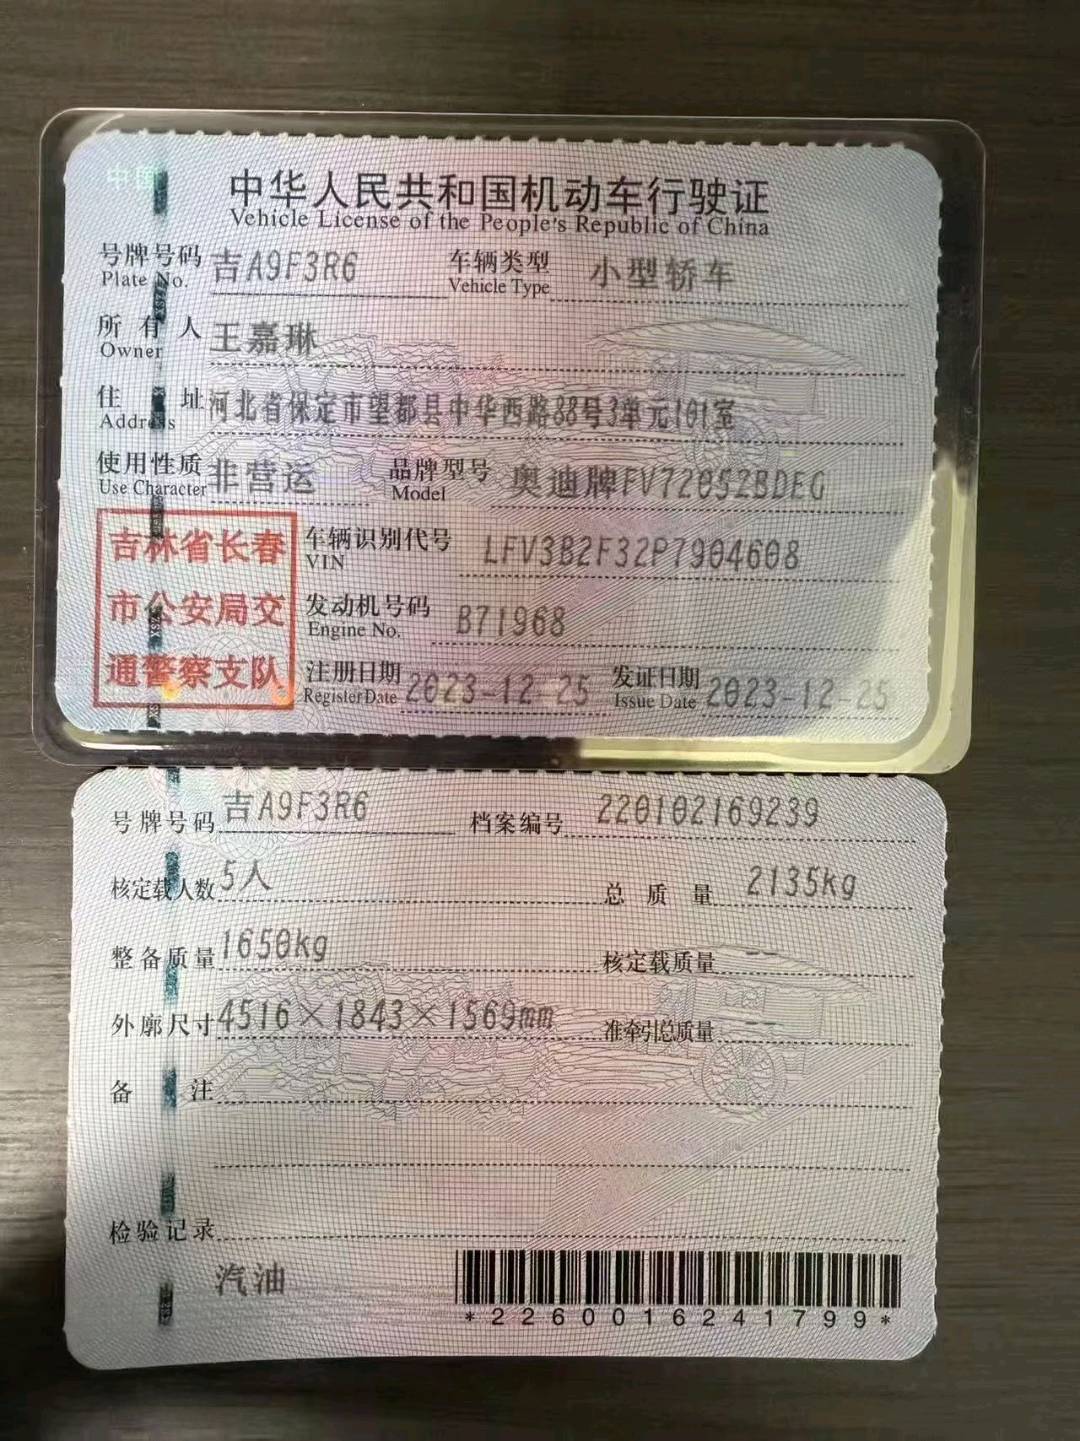 中国
中华人民共和国机动车行驶证
Vehicle License of the People's Republic of China
号牌号码 吉A9F3R6 车辆类型 小型轿车
Plate No. Vehicle Type
所有人 王嘉琳
Owner
住址 河北省保定市望都县中华西路88号3单元101室
Address
使用性质 非营运 品牌型号 奥迪牌FV72052BDEG
Use Character Model
吉林省长春
市公安局交
通警察支队
车辆识别代号 LFV3B2F32P7904608
VIN
发动机号码 B71968
Engine No.
注册日期 2023-12-25 发证日期 2023-12-25
Register Date Issue Date
号牌号码 吉A9F3R6 档案编号 220102169239
核定载人数 5人 总质量 2135kg
整备质量 1650kg 核定载质量 --
外廓尺寸 4516×1843×1569mm 准牵引总质量 --
备注
检验记录
汽油
*2260016241799*